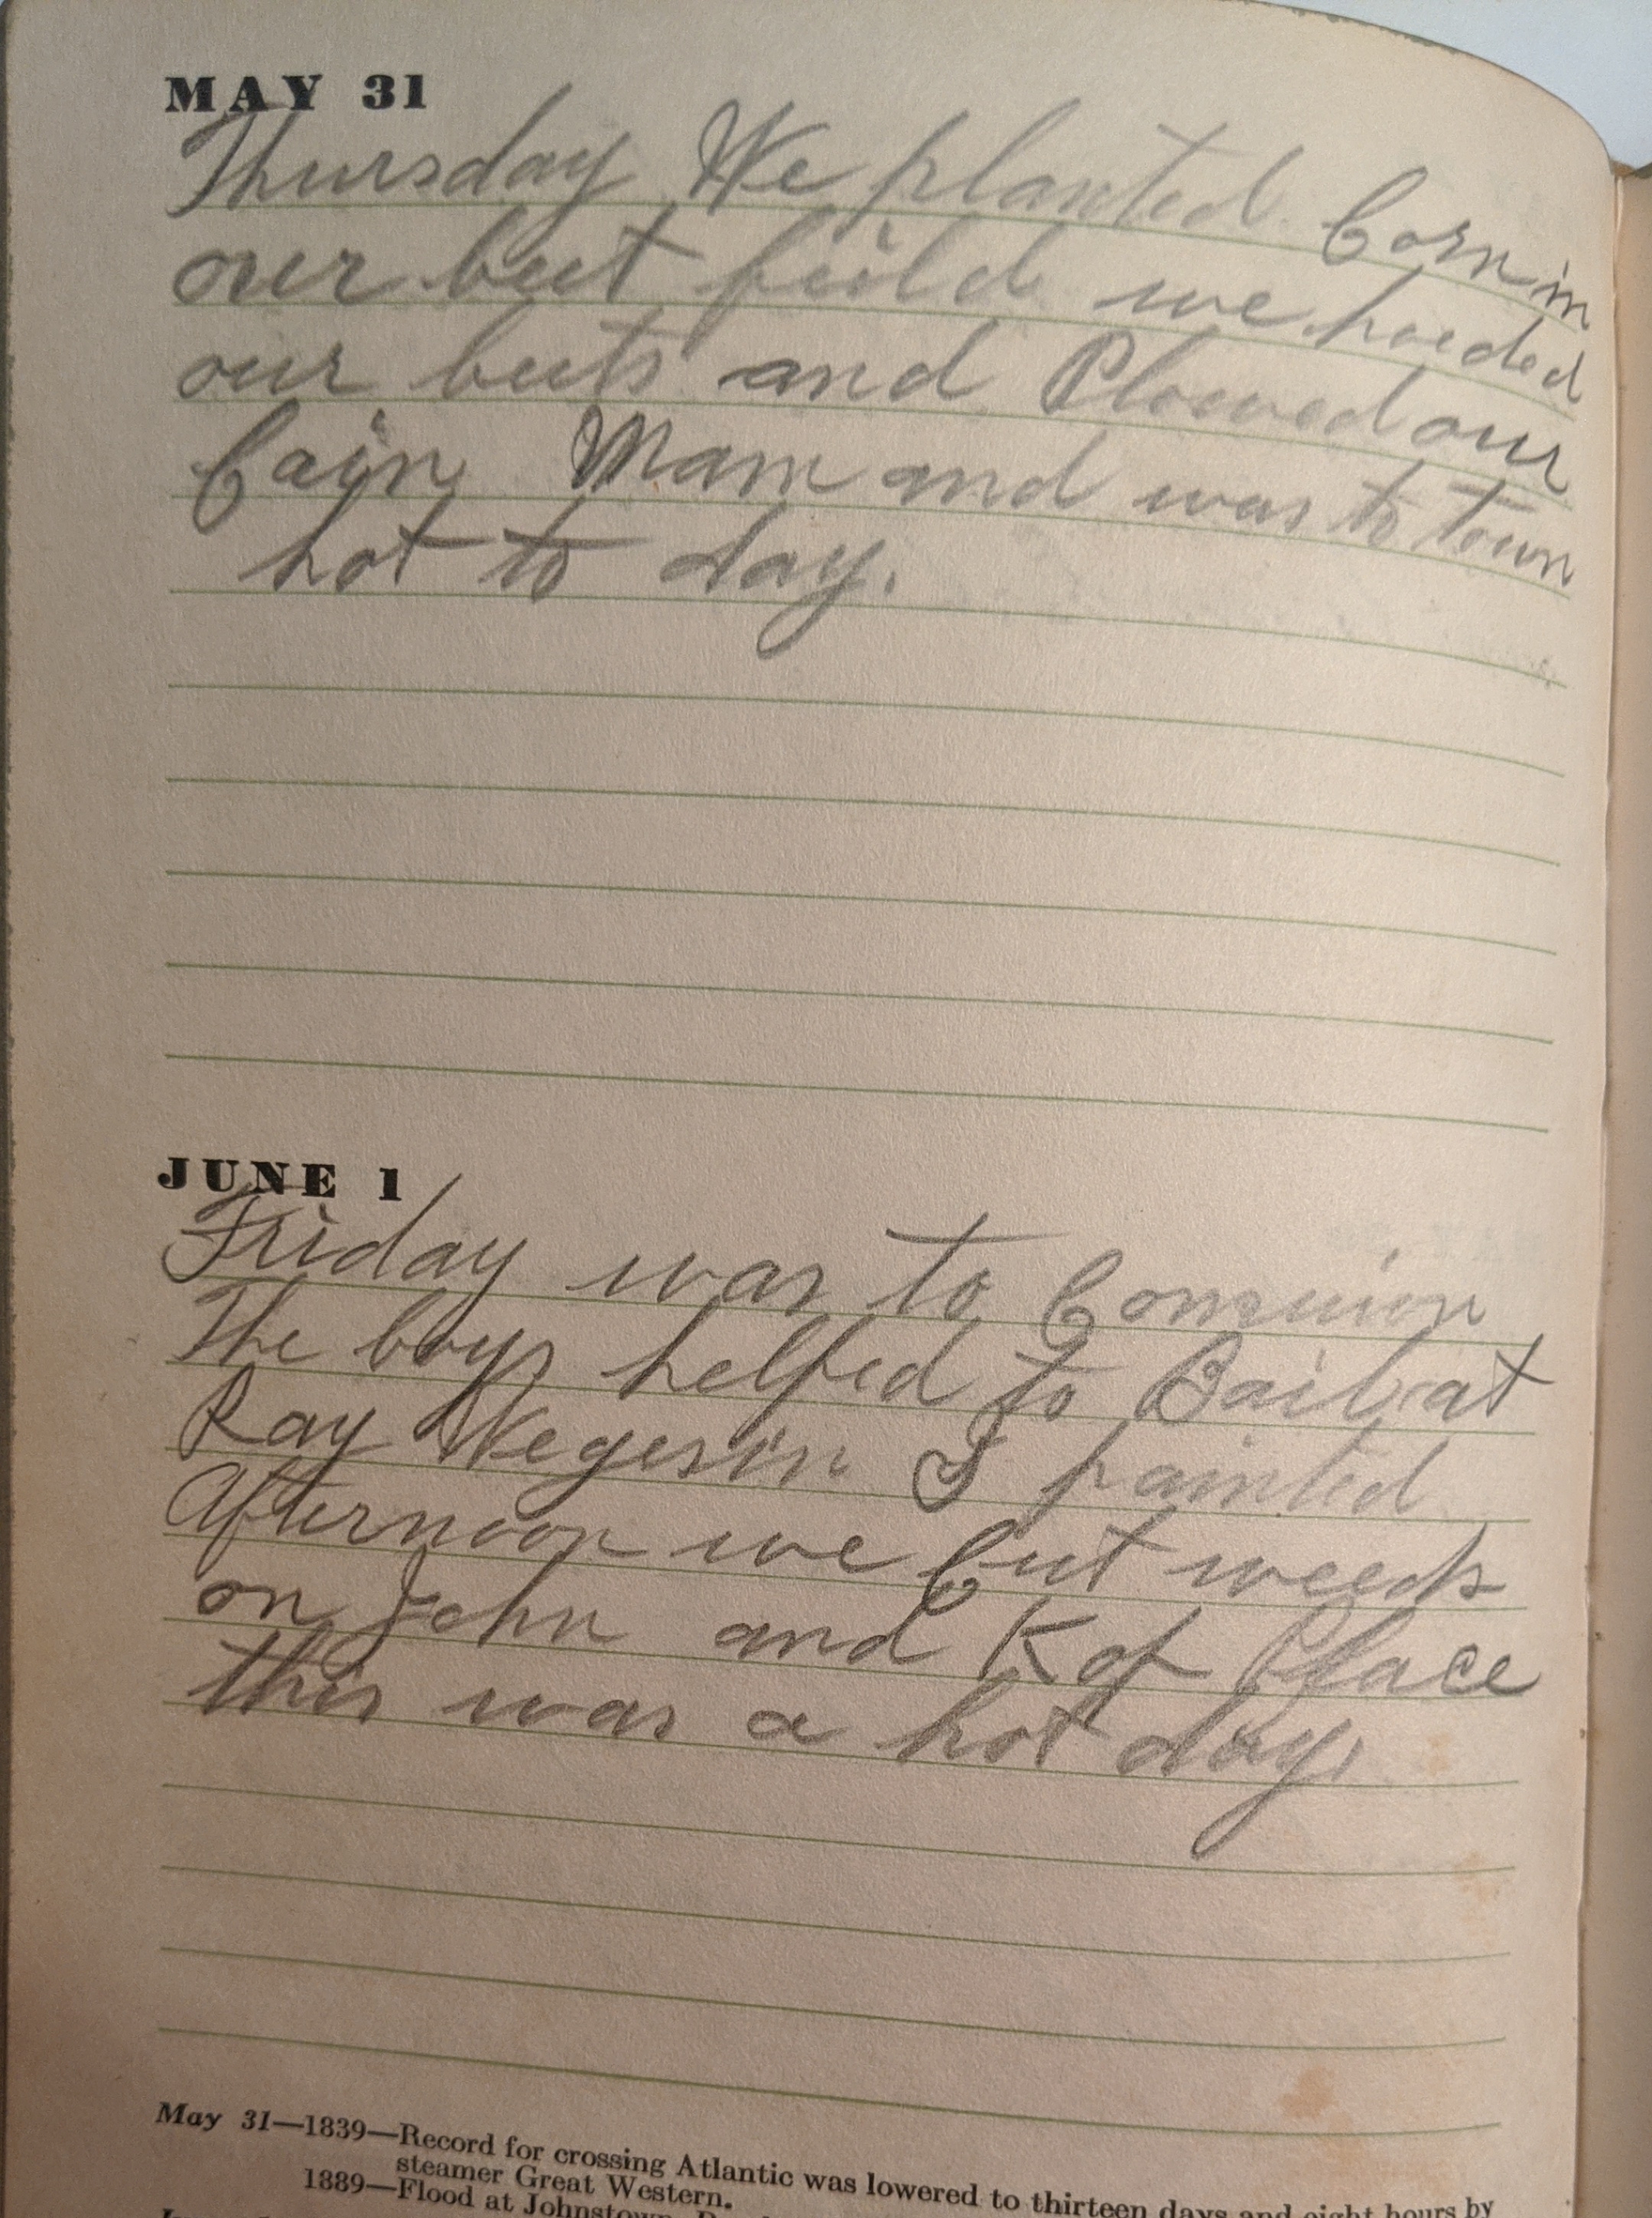 MAY 31
Thursday We planted Corn in
our beet feild we hoeded
our beets and Plowed our
Cain Mam and was to town
hot to day.
JUNE 1
Friday was to Comunion
The boys helped to Bail at
Ray Wegesin I painted
Afternoon we Cut weeds
on John and K of Place
this was a hot day.
May 31—1839—Record for crossing Atlantic was lowered to thirteen days and eight hours by
steamer Great Western.
1889—Flood at Johnstown